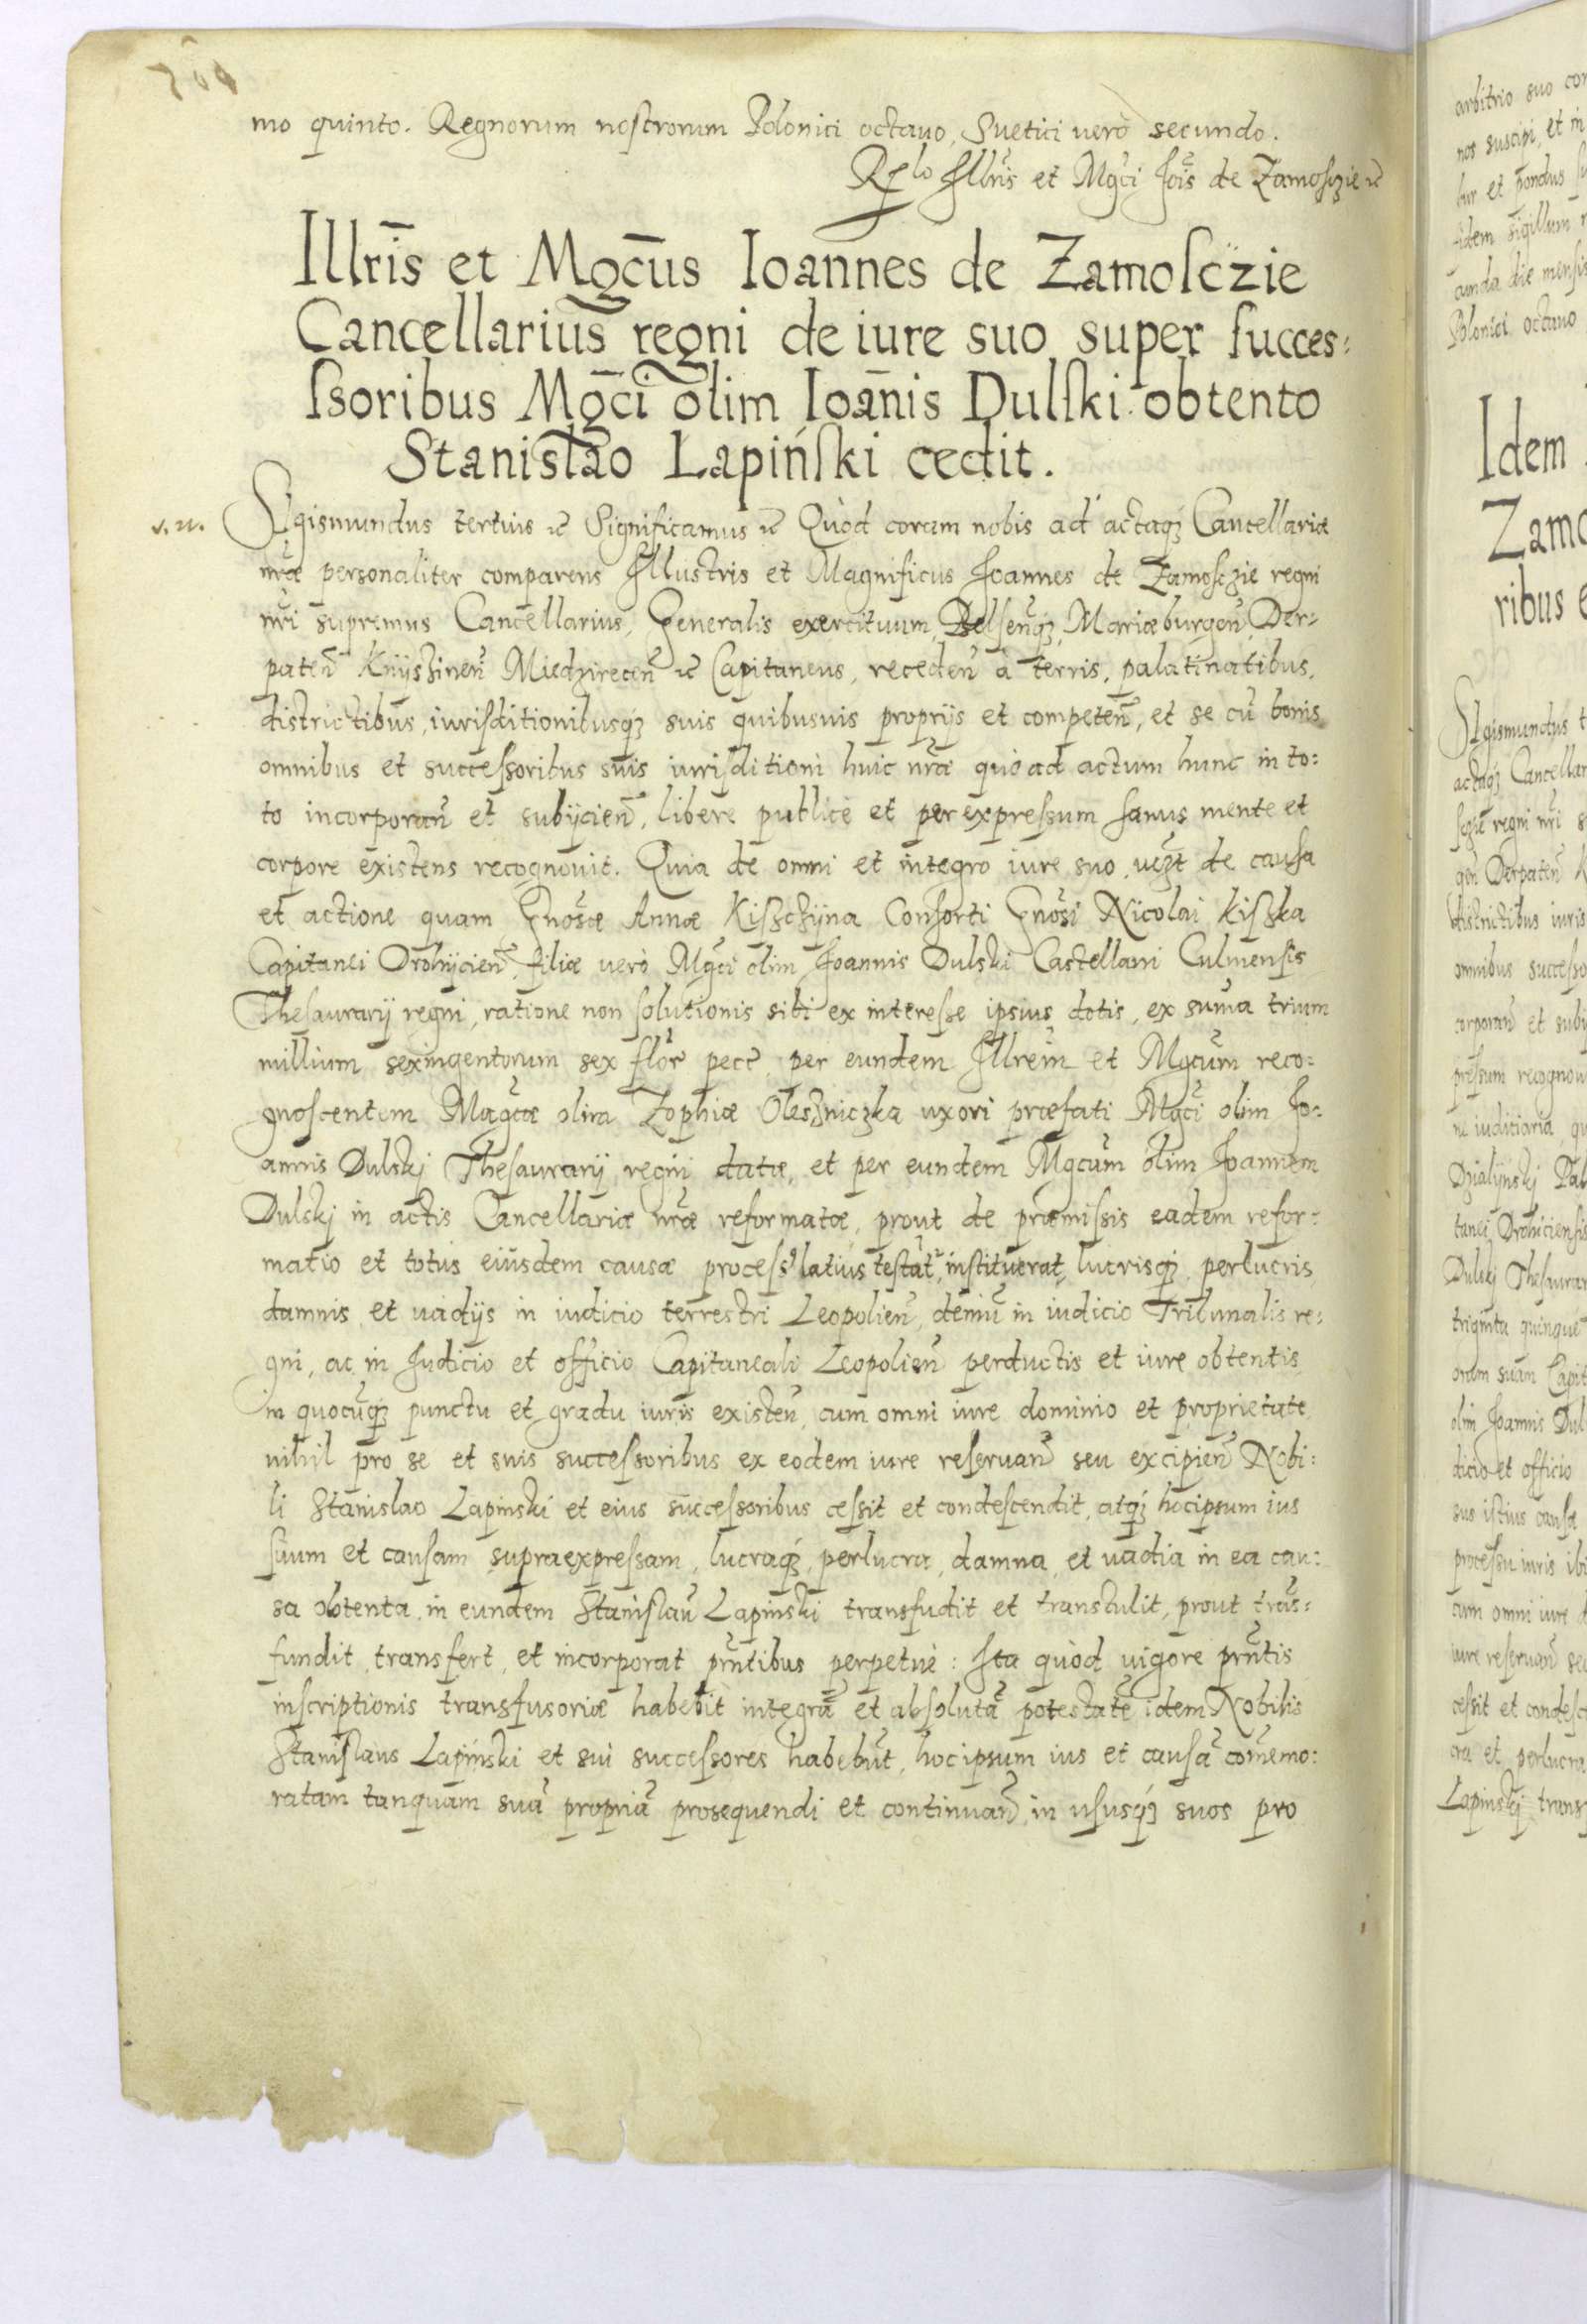 mo quinto. Regnorum nostrorum Polonici octauo, Suetici vero secundo.
Rlo Illris et Mgci Jois de Zamosczie
Illris et Mgcus Ioannes de Zamosczie
Cancellarius regni de iure suo super succes:
ssoribus Mgci olim Ioanis Dulski obtento
Stanislao Lapiński cedit.
Sigismundus tertius Significamus Quòd coram nobis ad actaq; Cancellariæ
nræ personaliter comparens Illustris et Magnificus Joannes de Zamosczie regni
nri supremus Cancellarius, Generalis exercituum, Belsenq;, Mariæburgen, Der-
paten Knijszinen Miedzirecen Capitaneus, receden à terris, palatinatibus,
districtibus, iurisditionibusq; suis quibusuis proprijs et competen, et se cu bonis
omnibus et successoribus suis iurisditioni huic nræ quò ad actum hunc in to:
to incorporan et subijcien, libere publice et per expressum sanus mente et
corpore existens recognouit. Quia de omni et integro iure suo, uezt de causa
et actione quam Gnosæ Annæ Kiszczijna Consorti Gnosi Nicolai Kiszka
Capitanei Drohijcien, filiæ verò Mgci olim Joannis Dulski Castellani Culmensis
Thesaurarij regni, ratione non solutionis sibi ex interesse ipsius dotis, ex suma trium
millium sexingentorum sex flor pecc per eundem Illrem et Mgcum reco:
gnoscentem Magcæ olim Zophiæ Oleszniczka uxori præfati Mgci olim Jo:
annis Dulskj Thesaurarij regni datæ, et per eundem Mgcum olim Joannem
Dulskj in actis Cancellariæ nræ reformatæ, prout de præmissis eadem refor:
matio et totus eiusdem causæ process9 latius testat, instituerat, lucrisq; perlucris
damnis et uadijs in iudicio terrestri Leopolien, demu in iudicio Tribunalis re:
gni, ac in Judicio et officio Capitaneali Leopolien perductis et iure obtentis
in quocuq; punctu et gradu iuris existen, cum omni iure dominio et proprietate
nihil pro se et suis successoribus ex eodem iure reseruan seu excipien Nobi:
li Stanislao Lapinski et eius successoribus cessit et condescendit, atq; hocipsum ius
suum et causam supraexpressam, lucraq;, perlucra, damna, et uadia in ea cau:
sa obtenta, in eundem Stanislau Lapinski transfudit et transtulit, prout tras:
fundit, transfert, et incorporat prntibus perpetuè: Ita quòd uigore prntis
inscriptionis transfusoriæ habebit integra et absoluta potestate idem Nobilis
Stanislaus Lapinski et sui successores habebut, hocipsum ius et causa comemo:
ratam tanquam sua propria prosequendi et continuan, in ususq; suos pro
arbitrio suo
nos suscipi, et in
tur et pondus
idem sigillum
cunda die mensis
Polonici octauo
Idem
Zamo
ribus
Sigismundus
actaq; Cancellar
regni nri
gen Derpaten
districtibus iuris
omnibus successo
corporan et subi
pressum recognou
Dulskj Thesaurar
triginta quinque
oram suam Capit
olim Joannis Dul
dicio et officio
sus istius causæ
processu iuris ibi
cum omni iure
iure reseruan seu
cessit et condesc
cra et perlucra
Lapinskj trans